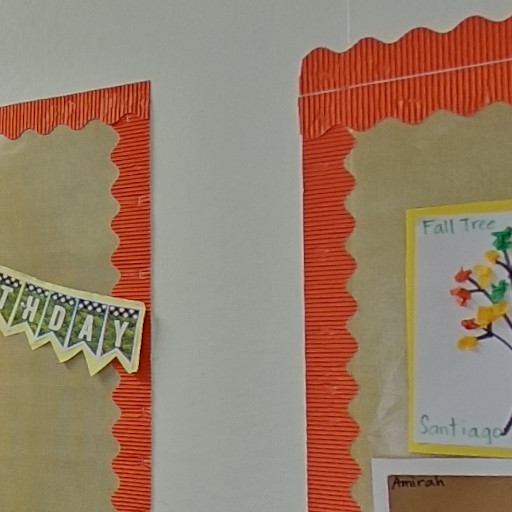 THDAY
Fall Tree
Santiago
Amirah